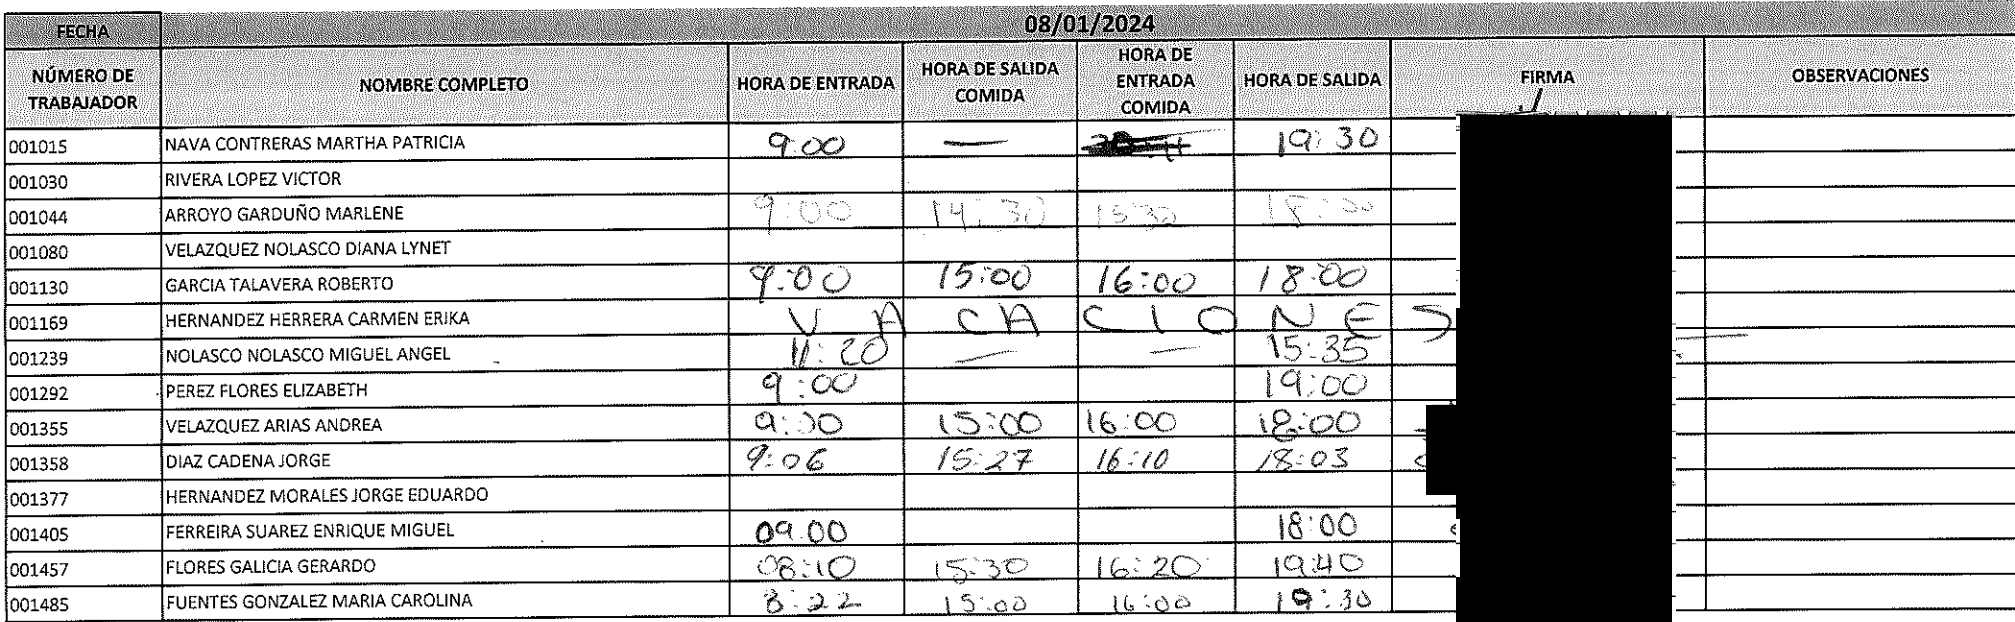 FECHA 08/01/2024
NÚMERO DE TRABAJADOR NOMBRE COMPLETO HORA DE ENTRADA HORA DE SALIDA COMIDA HORA DE ENTRADA COMIDA HORA DE SALIDA FIRMA OBSERVACIONES
001015 NAVA CONTRERAS MARTHA PATRICIA 9:00 — 19:30
001030 RIVERA LOPEZ VICTOR
001044 ARROYO GARDUÑO MARLENE 9:00 14:30 15:30 18:00
001080 VELAZQUEZ NOLASCO DIANA LYNET
001130 GARCIA TALAVERA ROBERTO 9:00 15:00 16:00 18:00
001169 HERNANDEZ HERRERA CARMEN ERIKA VACACIONES
001239 NOLASCO NOLASCO MIGUEL ANGEL 11:20 — — 15:35
001292 PEREZ FLORES ELIZABETH 9:00 19:00
001355 VELAZQUEZ ARIAS ANDREA 9:00 15:00 16:00 18:00
001358 DIAZ CADENA JORGE 9:06 15:27 16:10 18:03
001377 HERNANDEZ MORALES JORGE EDUARDO
001405 FERREIRA SUAREZ ENRIQUE MIGUEL 09.00 18:00
001457 FLORES GALICIA GERARDO 08:10 15:30 16:20 19:40
001485 FUENTES GONZALEZ MARIA CAROLINA 8:22 15:00 16:00 19:30